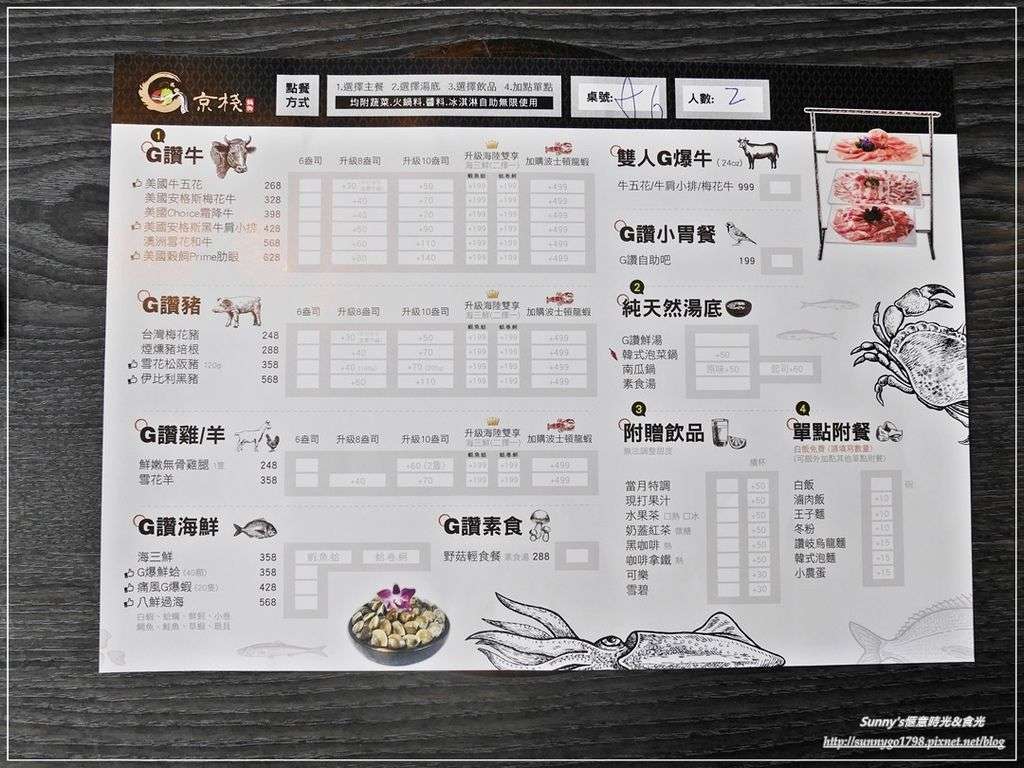 京棧
點餐方式
1.選擇主餐 2.選擇湯底 3.選擇飲品 4.加點單點
均附蔬菜.火鍋料.醬料.冰淇淋自助無限使用
桌號: A6
人數: 2
1
G讚牛
6盎司 升級8盎司 升級10盎司 升級海陸雙享 海三鮮(二擇一) 加購波士頓龍蝦
美國牛五花 268 +30 +50 +199 +199 +499
美國安格斯梅花牛 328 +40 +70 +199 +199 +499
美國Choice霜降牛 398 +40 +70 +199 +199 +499
美國安格斯黑牛肩小排 428 +60 +90 +199 +199 +499
澳洲雪花和牛 568 +60 +110 +199 +199 +499
美國穀飼Prime肋眼 628 +80 +140 +199 +199 +499
G讚豬
6盎司 升級8盎司 升級10盎司 升級海陸雙享 海三鮮(二擇一) 加購波士頓龍蝦
台灣梅花豬 248 +30 +50 +199 +199 +499
煙燻豬培根 288 +40 +70 +199 +199 +499
雪花松阪豬 120g 358 +40 +70 +199 +199 +499
伊比利黑豬 568 +60 +110 +199 +199 +499
G讚雞/羊
6盎司 升級8盎司 升級10盎司 升級海陸雙享 海三鮮(二擇一) 加購波士頓龍蝦
鮮嫩無骨雞腿 1隻 248 +60 (2隻) +199 +199 +499
雪花羊 358 +40 +70 +199 +199 +499
G讚海鮮
海三鮮 358 蝦魚蛤 蛤卷蚵
G爆鮮蛤 (40顆) 358
痛風G爆蝦 (20隻) 428
八鮮過海 568
白蝦、蛤蠣、鮮蚵、小卷
鯛魚、鮭魚、草蝦、扇貝
G讚素食
野菇輕食餐 素食湯 288
雙人G爆牛 (24oz)
牛五花/牛肩小排/梅花牛 999
G讚小胃餐
G讚自助吧 199
2
純天然湯底
G讚鮮湯
韓式泡菜鍋 +50
南瓜鍋 原味+50 起司+60
素食湯
3
附贈飲品
無法調整甜度
續杯
當月特調 +50
現打果汁 +50
水果茶 口熱 口冰 +50
奶蓋紅茶 微糖 +50
黑咖啡 熱 +50
咖啡拿鐵 熱 +50
可樂 +30
雪碧 +30
4
單點附餐
白飯免費 (請填寫數量)
(可額外加點其他單點附餐)
白飯 碗
滷肉飯 +10
王子麵 +10
冬粉 +10
讚岐烏龍麵 +15
韓式泡麵 +15
小農蛋 +15
Sunny's愜意時光&食光
http://sunnygo1798.pixnet.net/blog